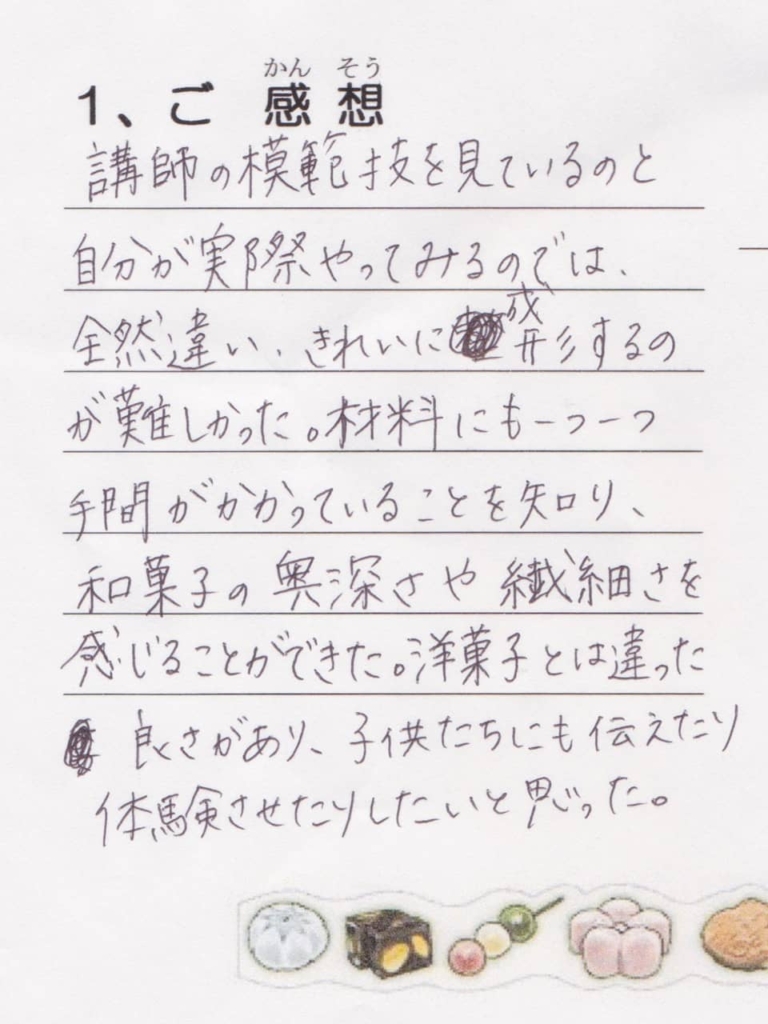 かん そう
1、ご 感 想
講師の模範技を見ているのと
自分が実際やってみるのでは、
全然違い、きれいに成形するの
が難しかった。材料にも一つ一つ
手間がかかっていることを知り、
和菓子の奥深さや繊細さを
感じることができた。洋菓子とは違った
良さがあり、子供たちにも伝えたり
体験させたりしたいと思った。